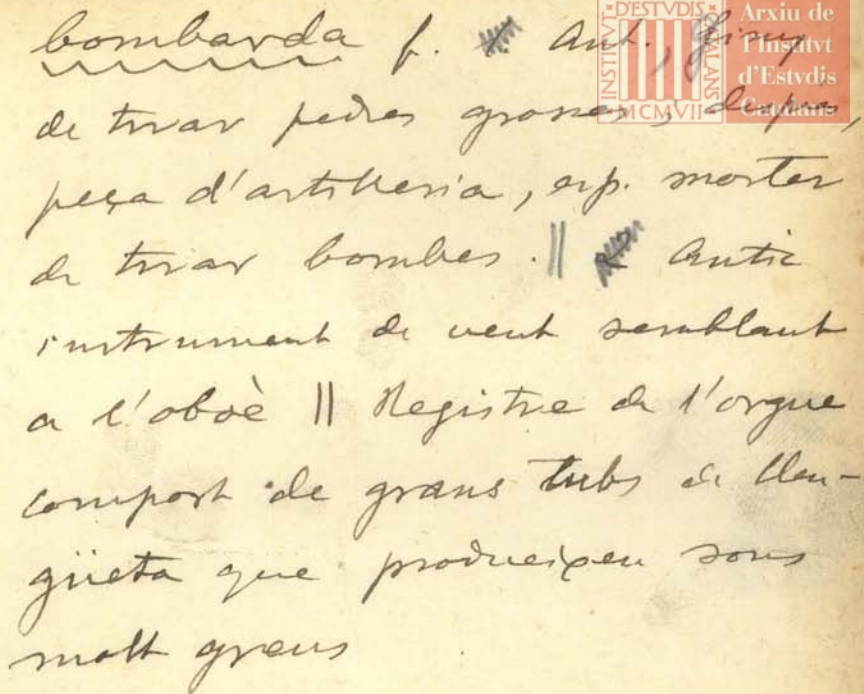 bombarda f. Ant., Giny
de tirar pedres grosses; després,
peça d'artilleria, esp. morter
de tirar bombes. || Antic
instrument de vent semblant
a l'oboè || Registre de l'orgue
compost de grans tubs de llen-
güeta que produeixen sons
molt greus
INSTITVT·D'ESTVDIS·CATALANS·MCMVII
Arxiu de
l'Institvt
d'Estvdis
Catalans